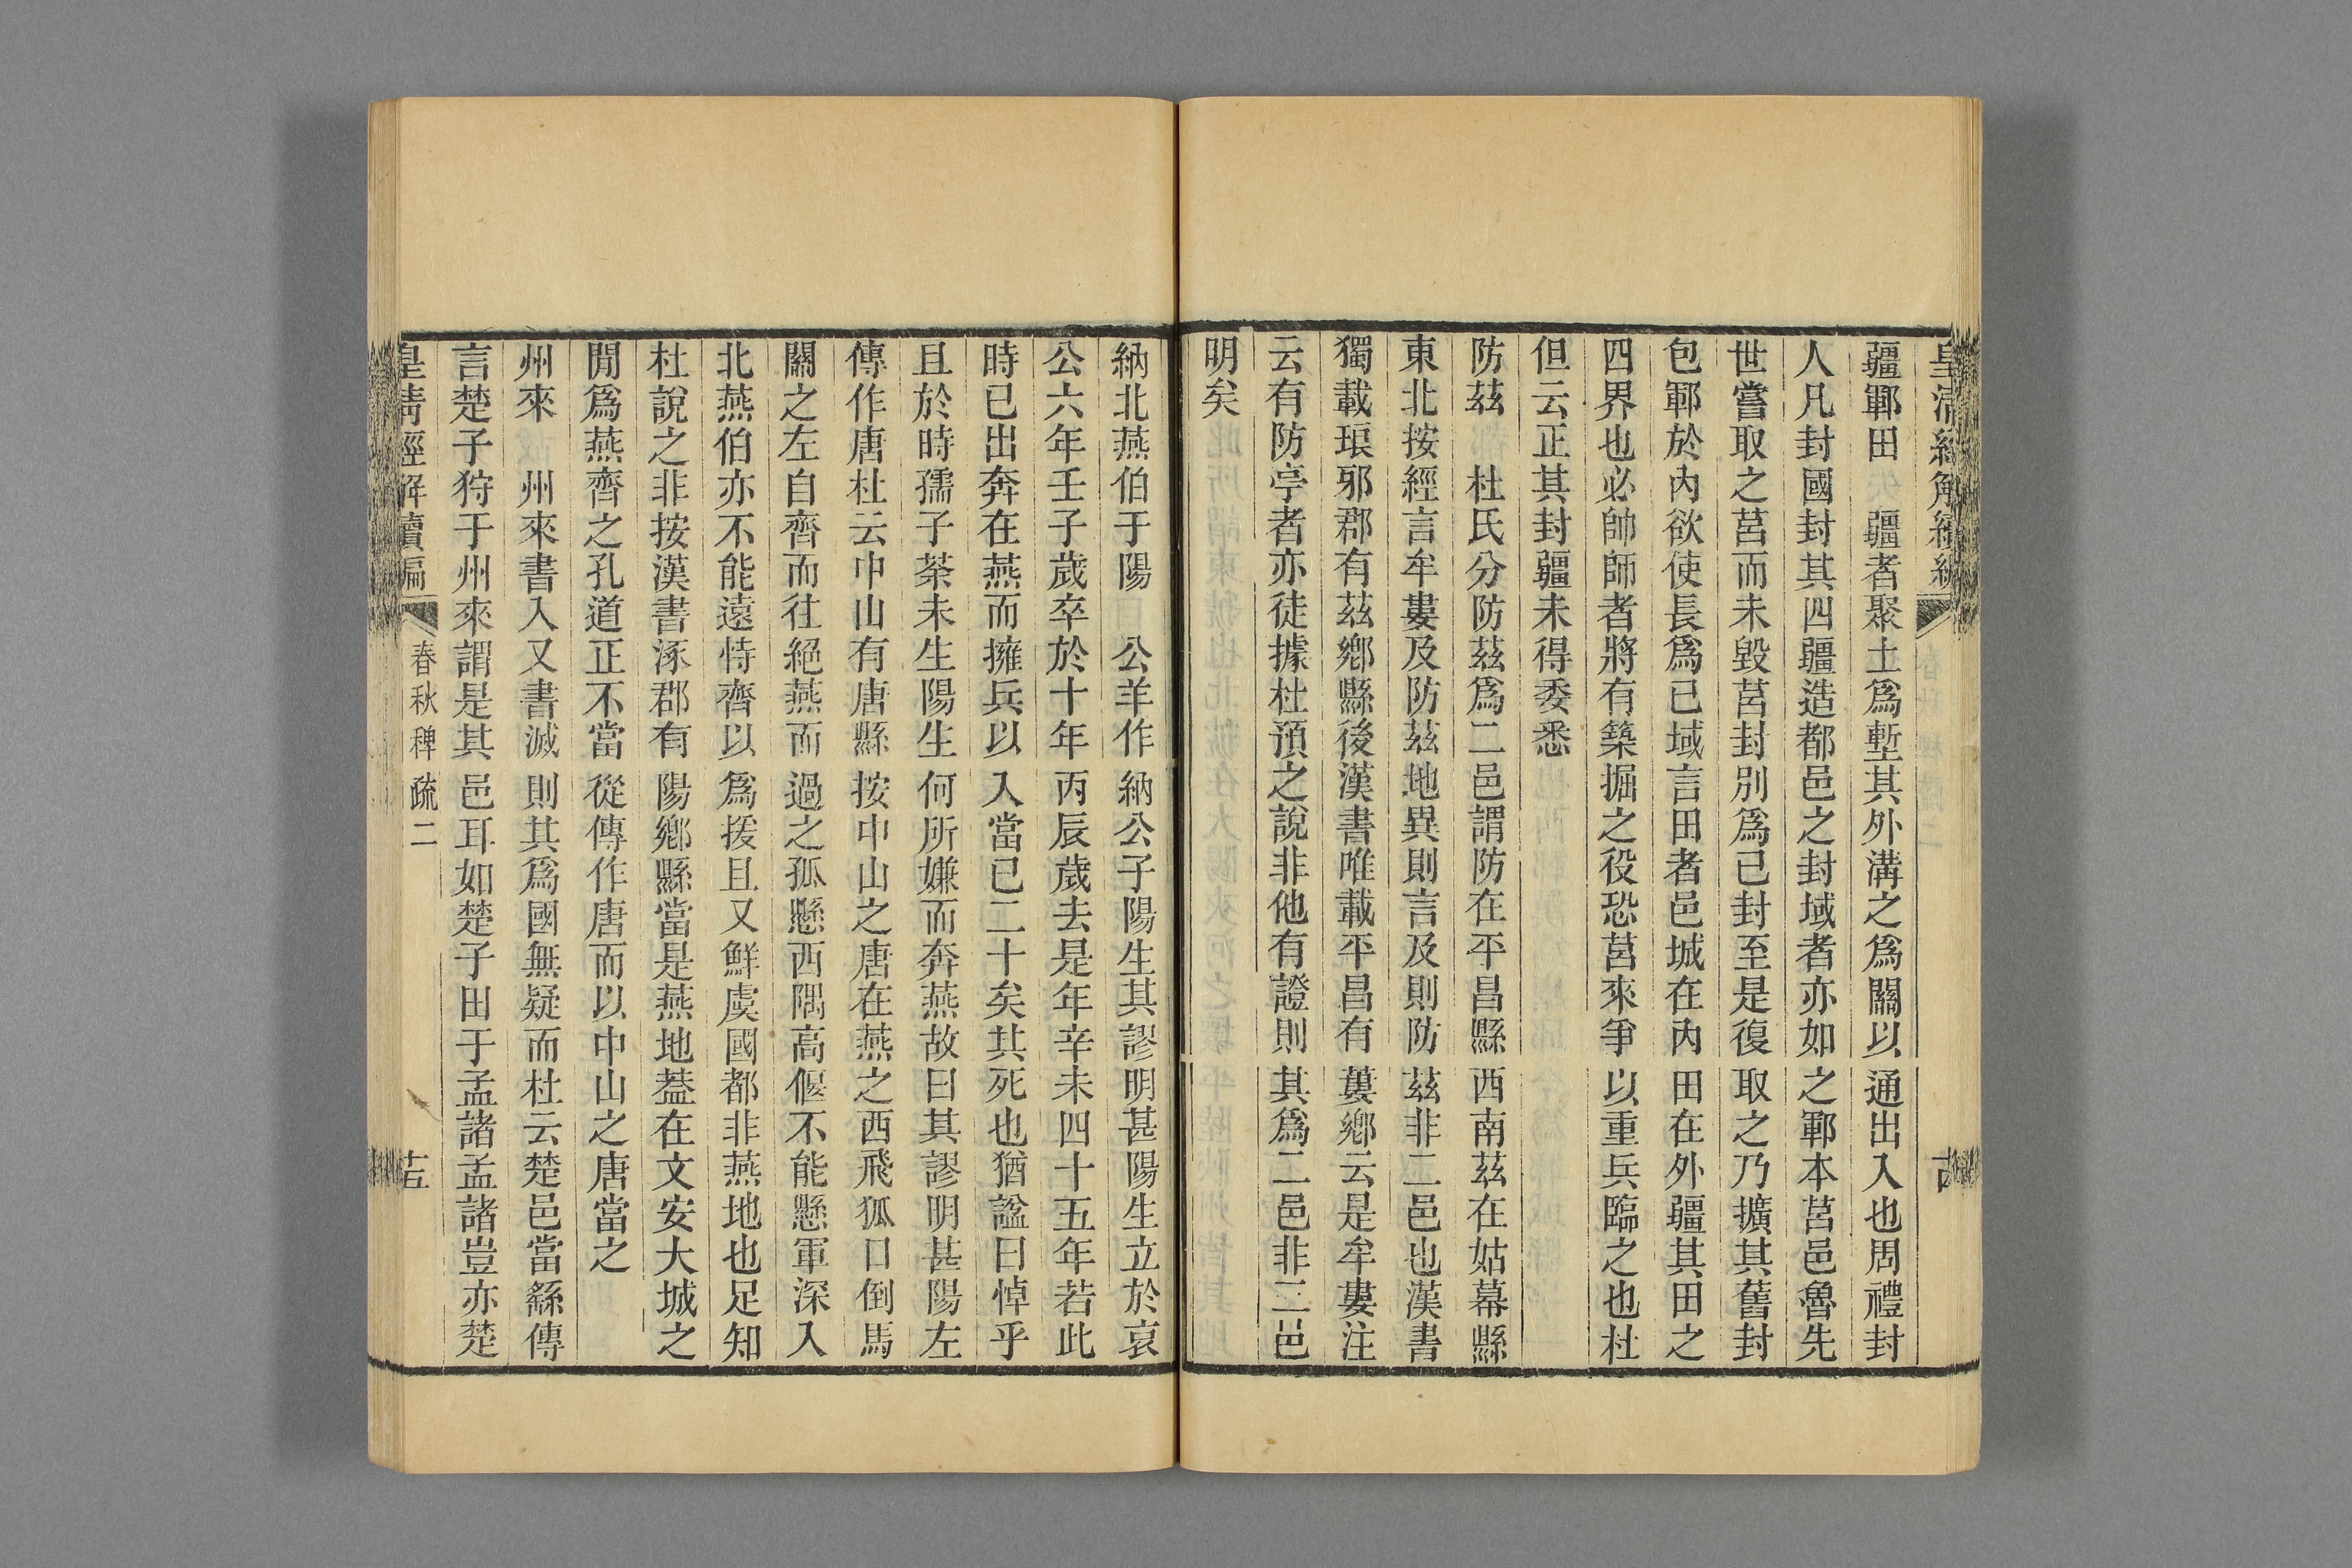 疆鄆田　疆者聚土爲塹其外溝之爲關以通出入也周禮封
人凡封國封其四疆造都邑之封域者亦如之鄆本莒邑魯先
世嘗取之莒而未毀莒封別爲已封至是復取之乃擴其舊封
包鄆於內欲使長爲已域言田者邑城在內田在外疆其田之
四界也必帥師者將有築掘之役恐莒來爭以重兵臨之也杜
但云正其封疆未得委悉
防茲　杜氏分防茲爲二邑謂防在平昌縣西南茲在姑幕縣
東北按經言牟婁及防茲地異則言及則防茲非二邑也漢書
獨載琅邪郡有茲鄉縣後漢書唯載平昌有蔞鄉云是牟婁注
云有防亭者亦徒據杜預之說非他有證則其爲二邑非三邑
明矣
納北燕伯于陽　公羊作納公子陽生其謬明甚陽生立於哀
公六年壬子歲卒於十年丙辰歲去是年辛未四十五年若此
時已出奔在燕而擁兵以入當已二十矣其死也猶諡曰悼乎
且於時孺子荼未生陽生何所嫌而奔燕故曰其謬明甚陽左
傳作唐杜云中山有唐縣按中山之唐在燕之西飛狐口倒馬
關之左自齊而往絕燕而過之孤懸西隅高偃不能懸軍深入
北燕伯亦不能遠恃齊以爲援且又鮮虞國都非燕地也足知
杜說之非按漢書涿郡有陽鄉縣當是燕地葢在文安大城之
閒爲燕齊之孔道正不當從傳作唐而以中山之唐當之
州來　州來書入又書滅則其爲國無疑而杜云楚邑當繇傳
言楚子狩于州來謂是其邑耳如楚子田于孟諸孟諸豈亦楚
皇清經解續編　春秋稗疏二　十五